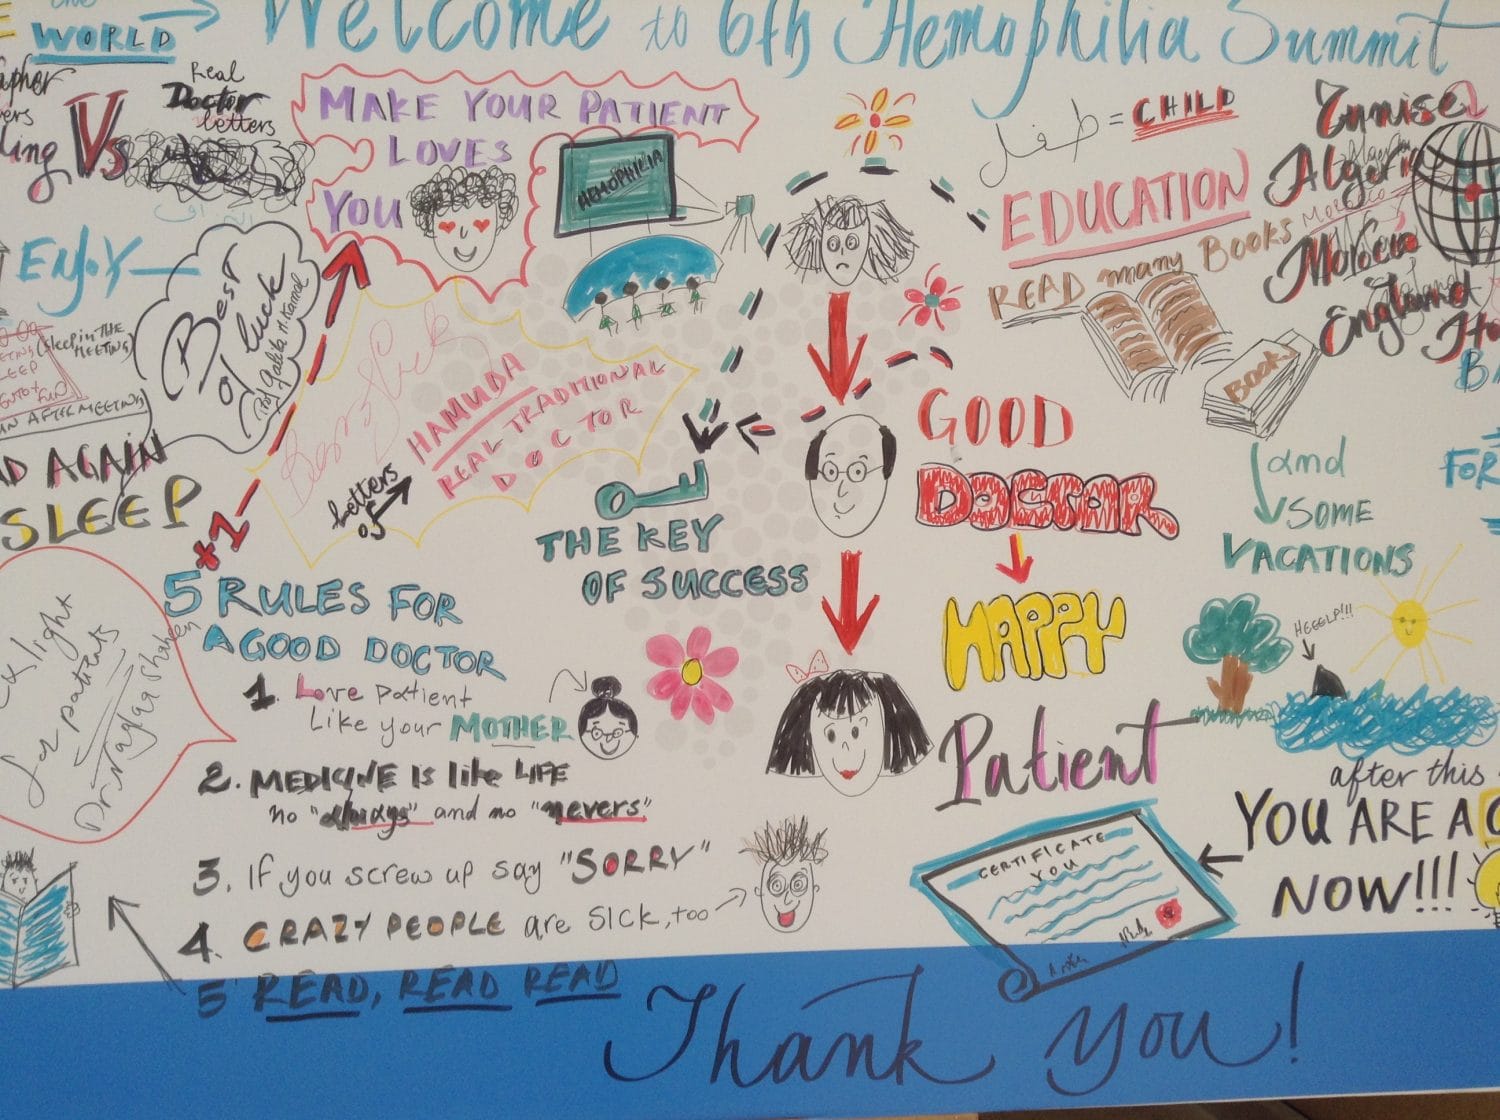 the
WORLD
Welcome to 6th Hemophilia Summit
Vs
Real
Doctor
letters
MAKE YOUR PATIENT
LOVES
YOU
HEMOPHILIA
طفل = CHILD
EDUCATION
READ many BOOKS
Book
Tunise
Algeri
Morocco
Moroco
England
ENJOY
Best
of luck
(sleep in THE
MEETING)
SLEEP
AFTER MEETING
AGAIN
SLEEP
+1
letters
of
HAMUDA
REAL TRADITIONAL
DOCTOR
THE KEY
OF SUCCESS
GOOD
DOCTOR
HAPPY
Patient
and
SOME
VACATIONS
HEEELP!!!
after this
YOU ARE A
NOW!!!
FOR
CERTIFICATE
YOU
light
for patients
5 RULES FOR
A GOOD DOCTOR
1. Love patient
Like your MOTHER
2. MEDICINE is like LIFE
no "always" and no "nevers"
3. If you screw up say "SORRY"
4. CRAZY PEOPLE are sick, too
5 READ, READ READ
Thank you!